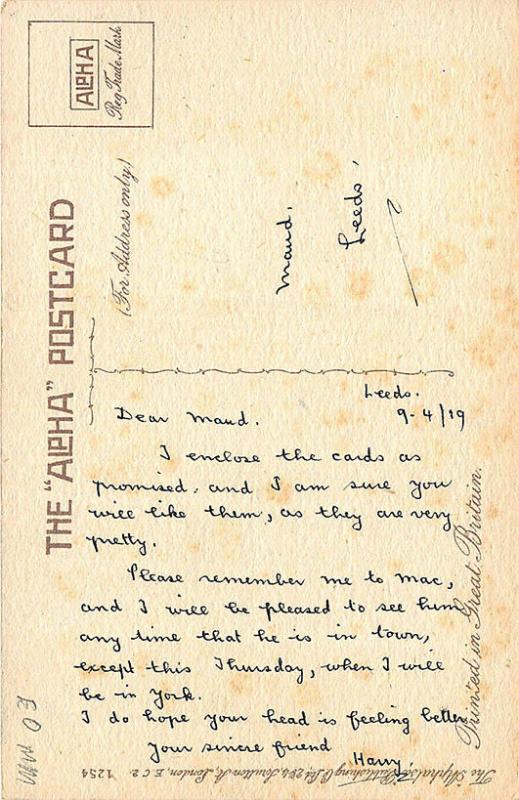 THE "ALPHA" POSTCARD
ALPHA
Reg Trade Mark
(For Address only)
Maud.
Leeds.
Leeds.
9-4/19
Dear Maud.
I enclose the cards as
promised, and I am sure you
will like them, as they are very
pretty.
Please remember me to Mac,
and I will be pleased to see him
any time that he is in town,
except this Thursday, when I will
be in York.
I do hope your head is feeling better
Your sincere friend
Harry.
Printed in Great Britain.
Publishing Co Ltd, London, E.C.2. 1254